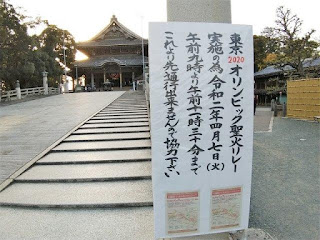 東京2020オリンピック聖火リレー
実施の為、令和二年四月七日(火)
午前九時より午前十一時三十分まで
これより先通行出来ませんので協力下さい